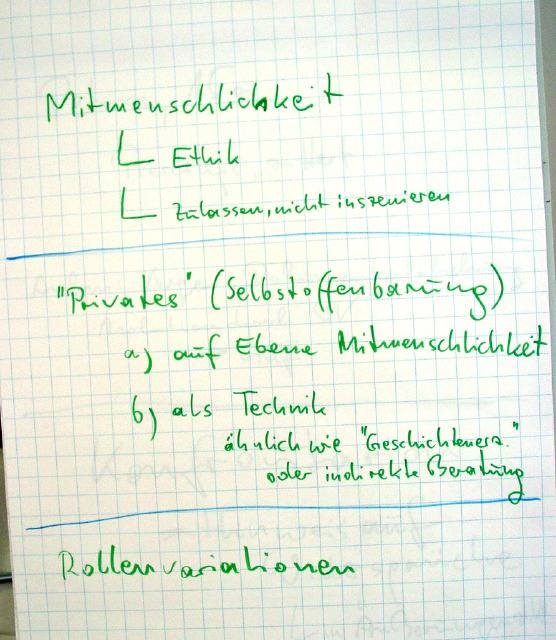 Mitmenschlichkeit
Ethik
Zulassen, nicht inszenieren
"Privates" (Selbstoffenbarung)
a) auf Ebene Mitmenschlichkeit
b) als Technik
ähnlich wie "Geschichtenerz."
oder indirekte Beratung
Rollenvariationen